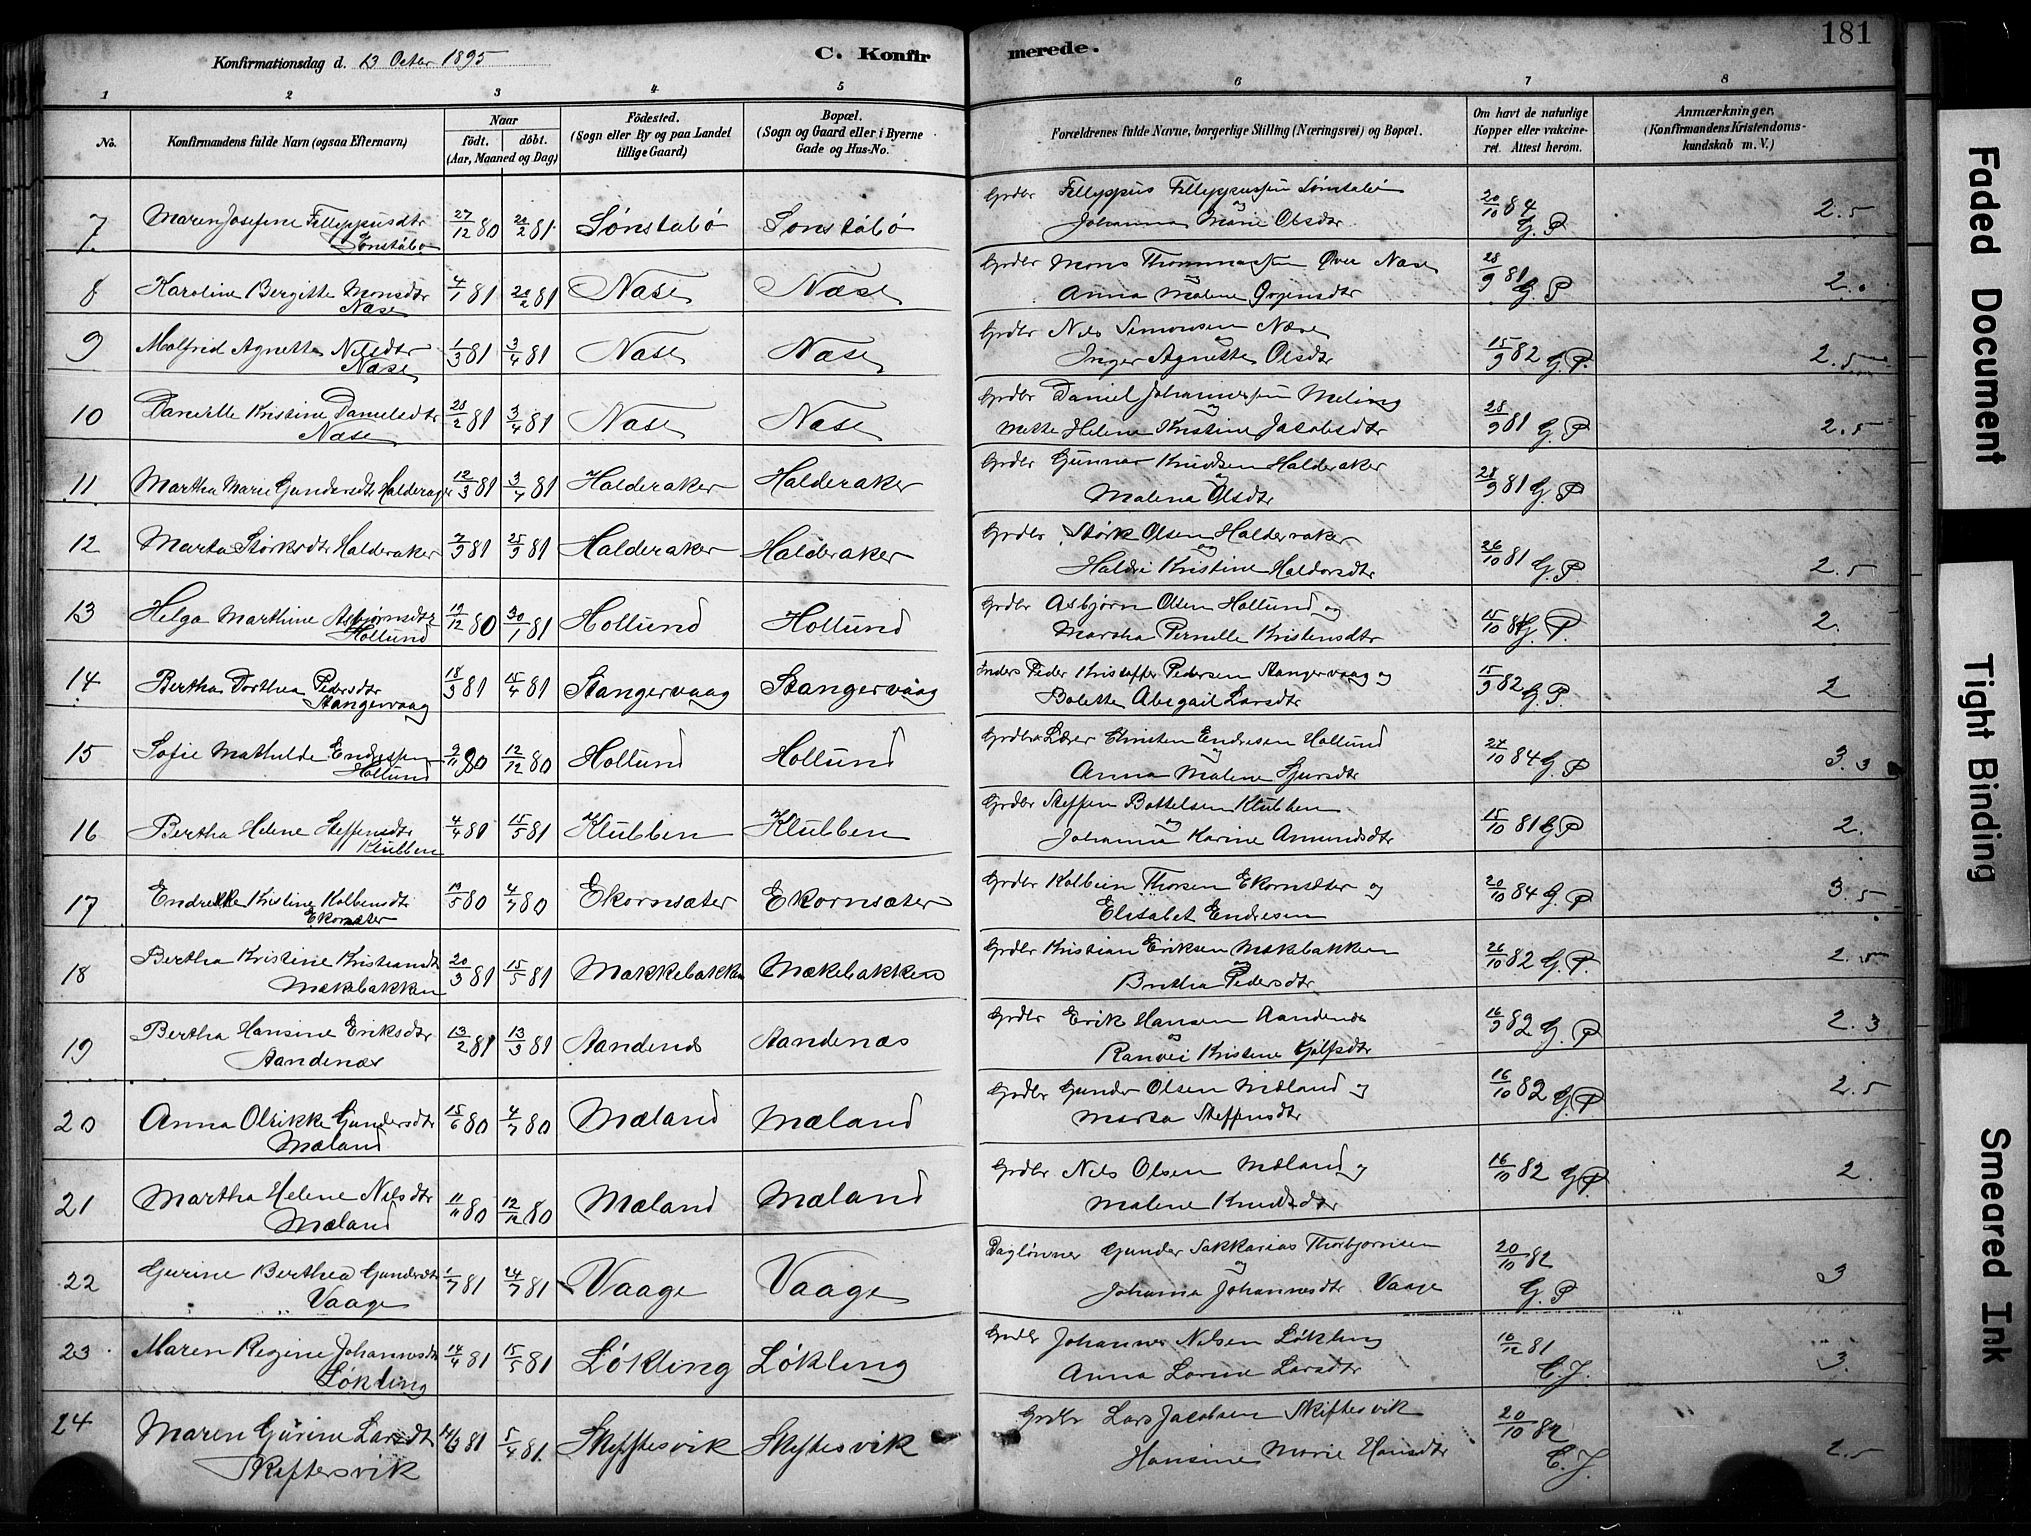 181
Konfirmationsdag d. 13 Octbr 1895
C. Konfirmerede.
1 2 3 4 5 6 7 8
No.
Konfirmandens fulde Navn (ogsaa Efternavn)
Naar
født. døbt.
(Aar, Maaned og Dag)
Fødested.
(Sogn eller By og paa Landet
tillige Gaard)
Bopæl.
(Sogn og Gaard eller i Byerne
Gade og Hus-No.
Forældrenes fulde Navne, borgerlige Stilling (Næringsvei) og Bopæl.
Om havt de naturlige
Kopper eller vakcine-
ret. Attest herom.
Anmærkninger.
(Konfirmandens Kristendoms-
kundskab m. V.)
7. Maren Josefine Fillippusdtr 27/12 80 20/2 81 Sønstabø Sønstabø Grdbr Fillippus Fillippussen Sønstabø 20/10 84 2.5
Sønstabø og Johanna Marie Olsdtr G. P
8 Karoline Bergitte Monsdtr 4/1 81 20/2 81 Næse Næse Grdbr Mons Thommassen Øvre Næse 28/9 81 G. P 2.
Næse og Anna Malene
9 Malfrid Agnette Nilsdtr 1/3 81 3/4 81 Næse Næse Grdbr Nils Simonsen Næse 15/9 82 G. P. 2.5
Næse Inger Agnette Olsdtr
10 Danielle Kristine Danielsdtr 28/2 81 3/4 81 Næse Næse Grdbr Daniel Johannessen Meling 28/9 81 G P 2.5
Næse og Mette Helene Kristine Jacobsdtr
11. Martha Marie Gundersdtr Halderager 12/3 81 3/4 81 Halderaker Halderaker Grdbr Gunnar Knudsen Halderaker 28/9 81 G. P
og Malena Olsdtr
12 Marta Størksdtr Halderaker 7/9 81 25/9 81 Halderaker Halderaker Grdbr Størk Olsen Halderaker 26/10 81 G. P 2.5
og Haldri Kristine Haldorsdtr
13 Helga Marthine Asbjørnsdtr 19/12 80 30/1 81 Hollund Hollund Grdbr Asbjørn Olsen Hollund og 15/10 84 G. P. 2.
Hollund Martha Pernille Kristensdtr
14 Bertha Dorthea Pedersdtr 18/3 81 15/4 81 Stangervaag Stangervaag Inders Peder Kristoffer Pedersen Stangervaag og 15/9 82 G. P. 2
Stangervaag Bolette Abegail Larsdtr
15 Sofie Mathilde Endresen 9/11 80 12/12 80 Hollund Hollund Grdbr Lærer Christen Endresen Hollund 24/10 84 G. P 3.3
Hollund og Anna Malene Sjursdtr
16 Bertha Helene Steffensdtr 4/4 81 15/5 81 Klubben Klubben Grdbr Steffen Bottelsen Klubben 15/10 81 G P 2.
Klubben og Johanna Karine Amundsdtr
17 Endrikke Kristine Kolbensdtr 19/5 80 4/7 80 Ekornsæter Ekornsæter Grdbr Kolbein Thorsen Ekornsæter og 20/10 84 G. P 3.5
Ekornsæter Elisabet Endresen
18 Bertha Kristine Kristiansdtr 20/3 81 15/5 81 Mækkebakken Mækebakken Grdbr Kristian Eriksen Mækbakken 26/10 82 G. P. 2.5
Mækebakken og Bertha Pedersdtr
19 Bertha Hansine Eriksdtr 13/2 81 13/3 81 Aandenæs Aandenæs Grdbr Erik Hansen Aandenæs 16/9 82 G. P 2.3
Aandenæs og Ranvei Kristine
20 Anna Olrikke Gundersdtr 15/6 80 4/7 80 Mæland Mæland Grdbr Gunder Olsen Mæland og 16/10 82 G. P 2.5
Mæland Marta Steffensdtr
21 Martha Helene Nilsdtr 11/11 80 12/12 80 Mæland Mæland Grdbr Nils Olsen Mæland og 16/10 82 G P. 2.
Mæland Malene Knudsdtr
22 Gurine Berthea Gundersdtr 1/7 81 24/7 81 Vaage Vaage Daglønner Gunder Sakkarias Thorbjørnsen 20/10 82 3
Vaage og Johanna Johannesdtr Vaage G. P
23 Maren Regine Johannesdtr 14/4 81 15/5 81 Løkling Løkling Grdbr Johannes Nilsen Løkling 16/12 81 3.
Løkling Anna Lorine Larsdtr C. J.
24 Maren Gurine Larsdtr 14/3 81 5/4 81. Skiftesvik Skiftesvik Grdbr Lars Jacobsen Skiftesvik 20/10 82 2.5
Skiftesvik Hansine Marie Hansdtr C. J.
Faded Document
Tight Binding
Smeared Ink